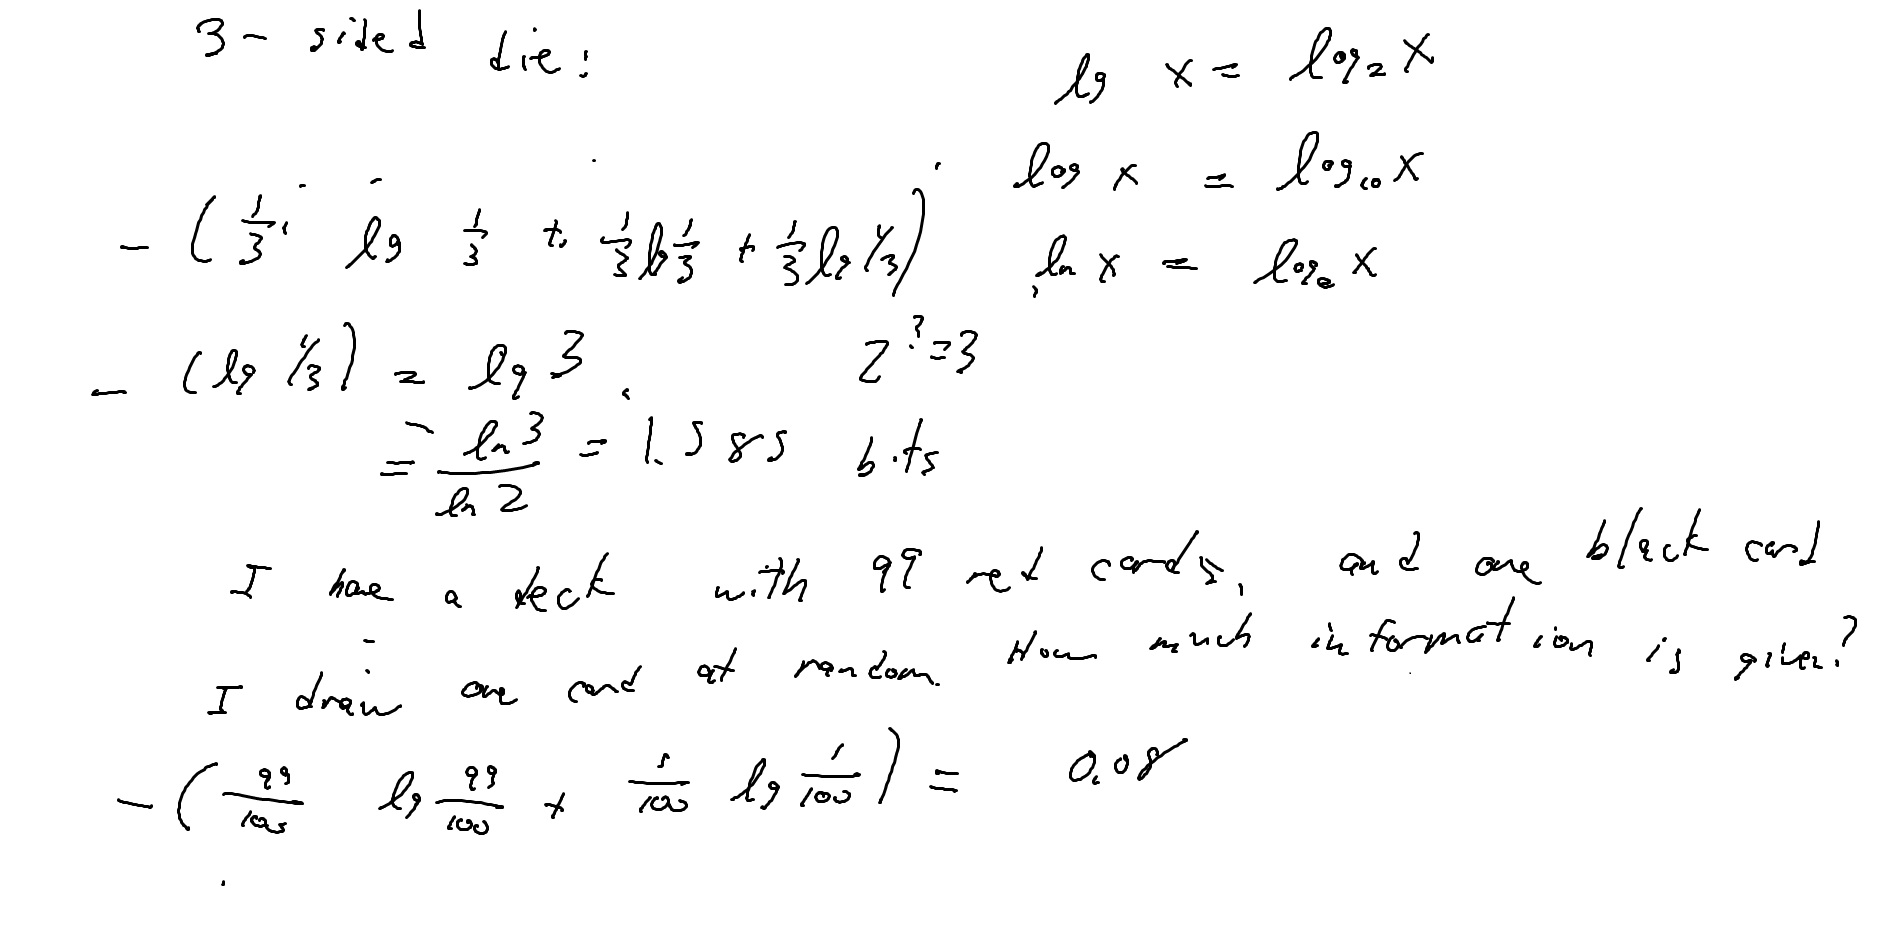 3 - sided die:
lg x = log₂ x
log x = log₁₀ x
- (1/3 · lg 1/3 + 1/3 lg 1/3 + 1/3 lg 1/3)
ln x = logₑ x
- (lg 1/3) = lg 3
2^? = 3
= ln 3 / ln 2 = 1.585 bits
I have a deck with 99 red cards, and one black card
I draw one card at random. How much information is given?
- (99/100 lg 99/100 + 1/100 lg 1/100) = 0.08